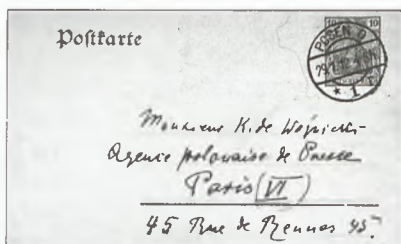 Postkarte
10 10
POSEN O
* 1
Monsieur K. de Woźnicki
Agence polonaise de Presse
Paris (VI)
45 Rue de Rennes 45.